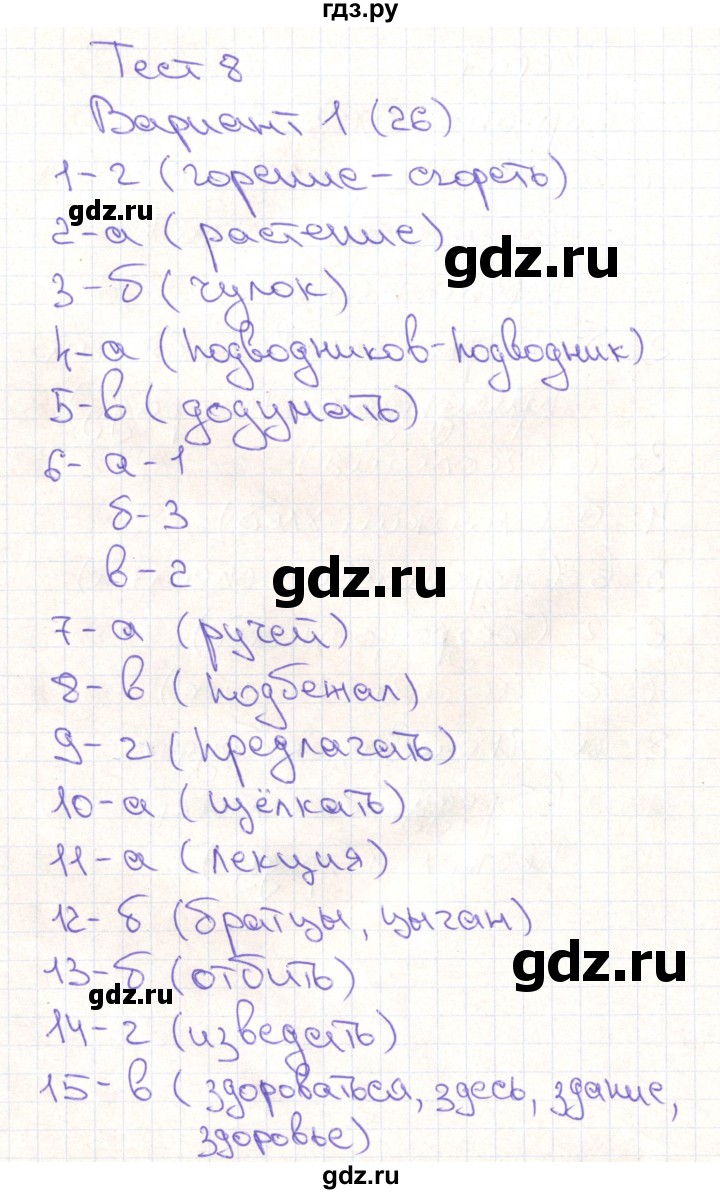 гдз.ру
Тест 8
Вариант 1 (26)
1-г (горение - сгореть)
gdz.ru
2-а (растение)
gdz.ru
3-б (чулок)
4-а (подводников-подводник)
5-в (додумать)
6- а-1
б-3
в-2
gdz.ru
7-а (ручей)
8-в (подбежал)
9-г (предлагать)
10-а (щёлкать)
11-а (лекция)
12-б (братцы, цыган)
gdz.ru
13-б (отбить)
gdz.ru
14-г (изведать)
15-в (здороваться, здесь, здание,
здоровье)
gdz.ru